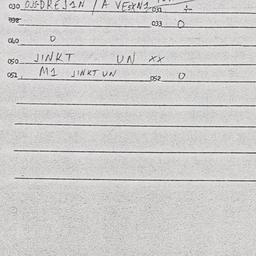 030 OJGDREJ1N / A VESXN1 031 +
032 033 0
040 0
050 JINKT UN XX
051 M1 JINKT UN 052 0